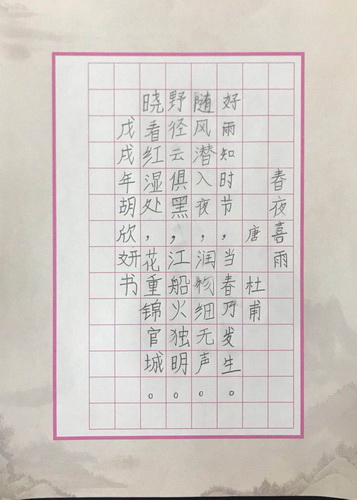 春夜喜雨
唐 杜甫
好雨知时节,当春乃发生。
随风潜入夜,润物细无声。
野径云俱黑,江船火独明。
晓看红湿处,花重锦官城。
戊戌年胡欣妍书